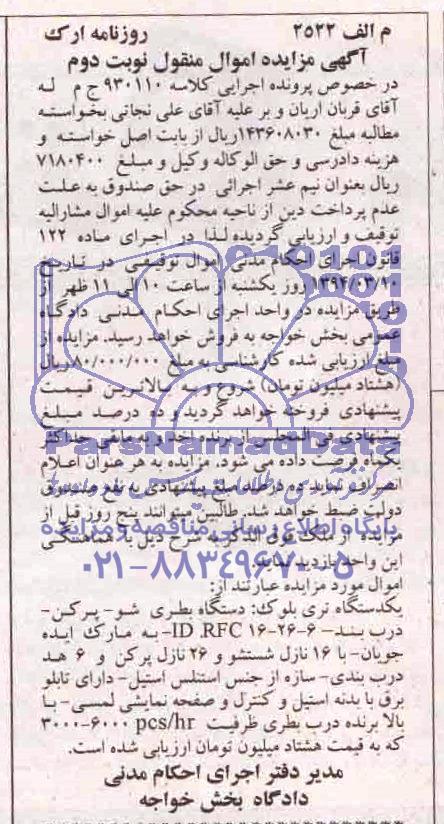 م الف ۲۵۲۲ روزنامه ارک
آگهی مزایده اموال منقول نوبت دوم
در خصوص پرونده اجرایی کلاسه ۹۳۰۱۱۰ ج م له
آقای قربان اریان و بر علیه آقای علی نجاتی بخواسته
مطالبه مبلغ ۱۴۳۶۰۸۰۳۰ریال از بابت اصل خواسته و
هزینه دادرسی و حق الوکاله وکیل و مبلغ ۷۱۸۰۴۰۰
ریال بعنوان نیم عشر اجرائی در حق صندوق به علت
عدم پرداخت دین از ناحیه محکوم علیه اموال مشارالیه
توقیف و ارزیابی گردیده لذا در اجرای ماده ۱۲۲
قانون اجرای احکام مدنی اموال توقیفی در تاریخ
۱۳۹۴/۰۳/۲۰ روز یکشنبه از ساعت ۱۰ الی ۱۱ ظهر از
طریق مزایده در واحد اجرای احکام مدنی دادگاه
عمومی بخش خواجه به فروش خواهد رسید. مزایده از
مبلغ ارزیابی شده کارشناسی به مبلغ ۸۰/۰۰۰/۰۰۰ریال
(هشتاد میلیون تومان) شروع و به بالاترین قیمت
پیشنهادی فروخته خواهد گردید و ده درصد مبلغ
پیشنهادی فی المجلس از برنده اخذ و به مابقی حداکثر
یکماه فرصت داده می شود. مزایده به هر عنوان اعلام
انصراف نماید ده درصد مبلغ پیشنهادی به نفع صندوق
دولت ضبط خواهد شد. طالبین میتوانند پنج روز قبل از
مزایده از ملک فوق الذکر به شرح ذیل با هماهنگی
این واحد بازدید نمایند.
اموال مورد مزایده عبارتند از:
یکدستگاه تری بلوک: دستگاه بطری شو- پرکن-
درب بند- ID RFC ۱۶-۲۶-۶- به مارک ایده
جویان- با ۱۶ نازل شستشو و ۲۶ نازل پرکن و ۶ هد
درب بندی- سازه از جنس استنلس استیل- دارای تابلو
برق با بدنه استیل و کنترل و صفحه نمایش لمسی- با
بالا برنده درب بطری ظرفیت ۳۰۰۰-۶۰۰۰ pcs/hr
که به قیمت هشتاد میلیون تومان ارزیابی شده است.
مدیر دفتر اجرای احکام مدنی
دادگاه بخش خواجه
ParsNamadData
پایگاه اطلاع رسانی مناقصه و مزایده
۰۲۱-۸۸۳۴۹۶۷۰-۵